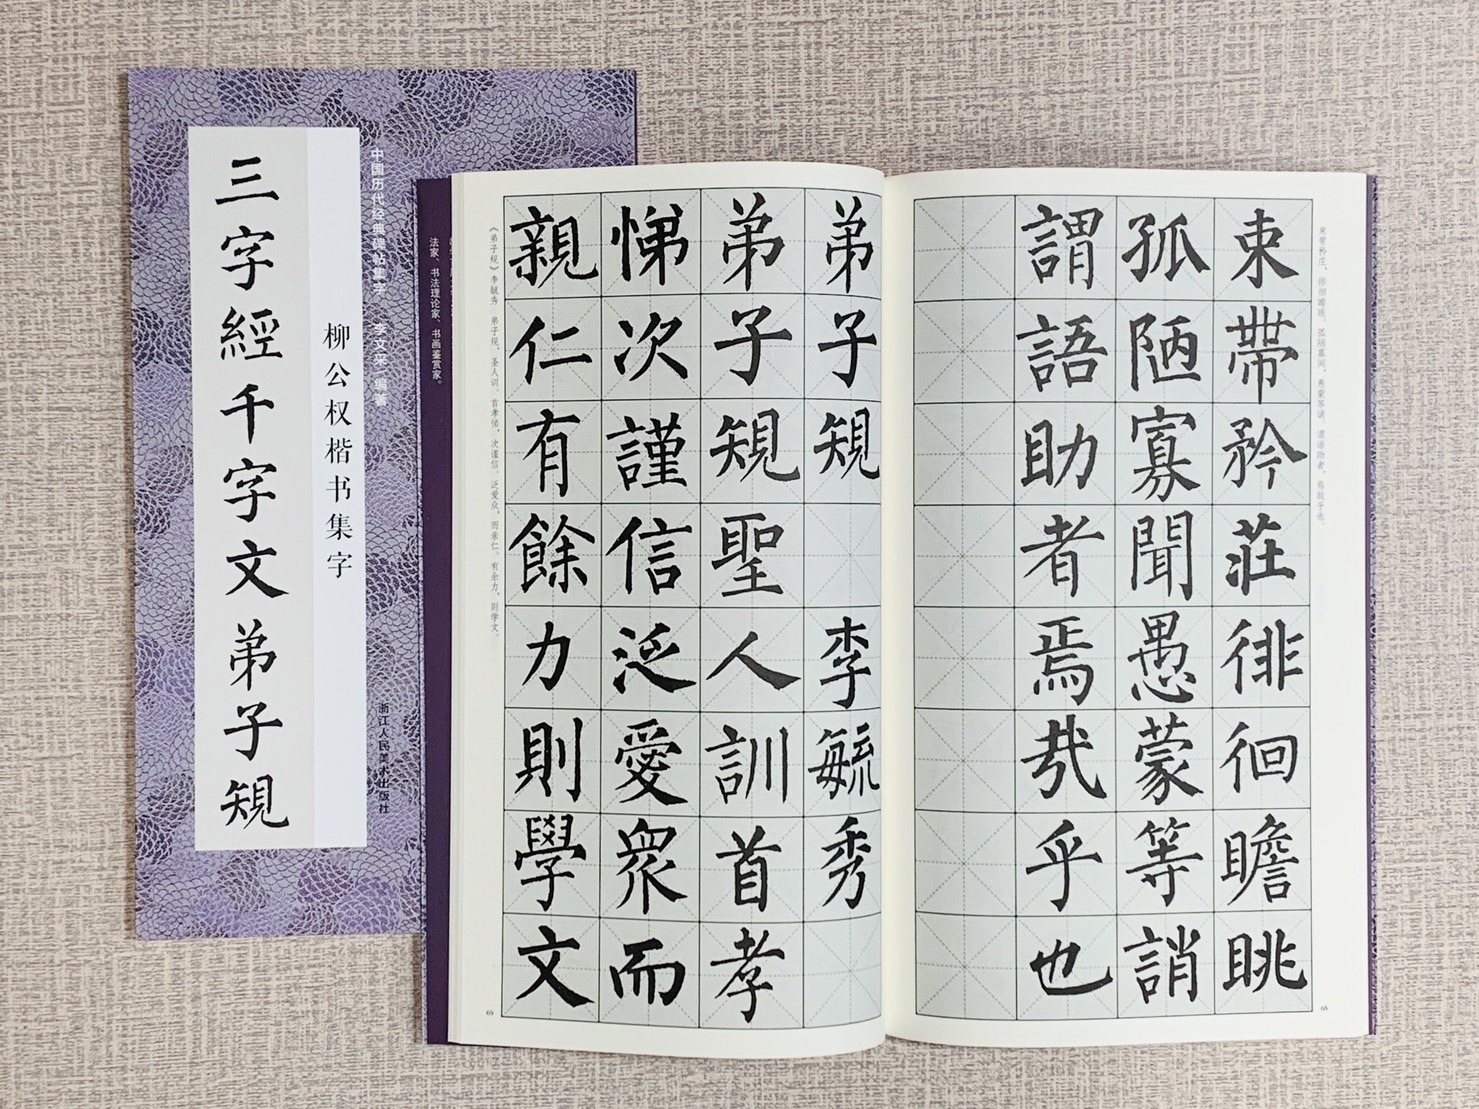 三字經千字文弟子規
柳公权楷书集字
中国历代经典碑帖集字 李文采 编著
浙江人民美术出版社
法家、书法理论家、书画鉴赏家。
束帶矜莊徘徊瞻眺
孤陋寡聞愚蒙等誚
謂語助者焉哉乎也
束带矜庄，徘徊瞻眺。孤陋寡闻，愚蒙等诮。谓语助者，焉哉乎也。
68
弟子規 李毓秀
弟子規聖人訓首孝
悌次謹信泛愛眾而
親仁有餘力則學文
《弟子规》李毓秀 弟子规，圣人训 首孝悌，次谨信。泛爱众，而亲仁。有余力，则学文。
69